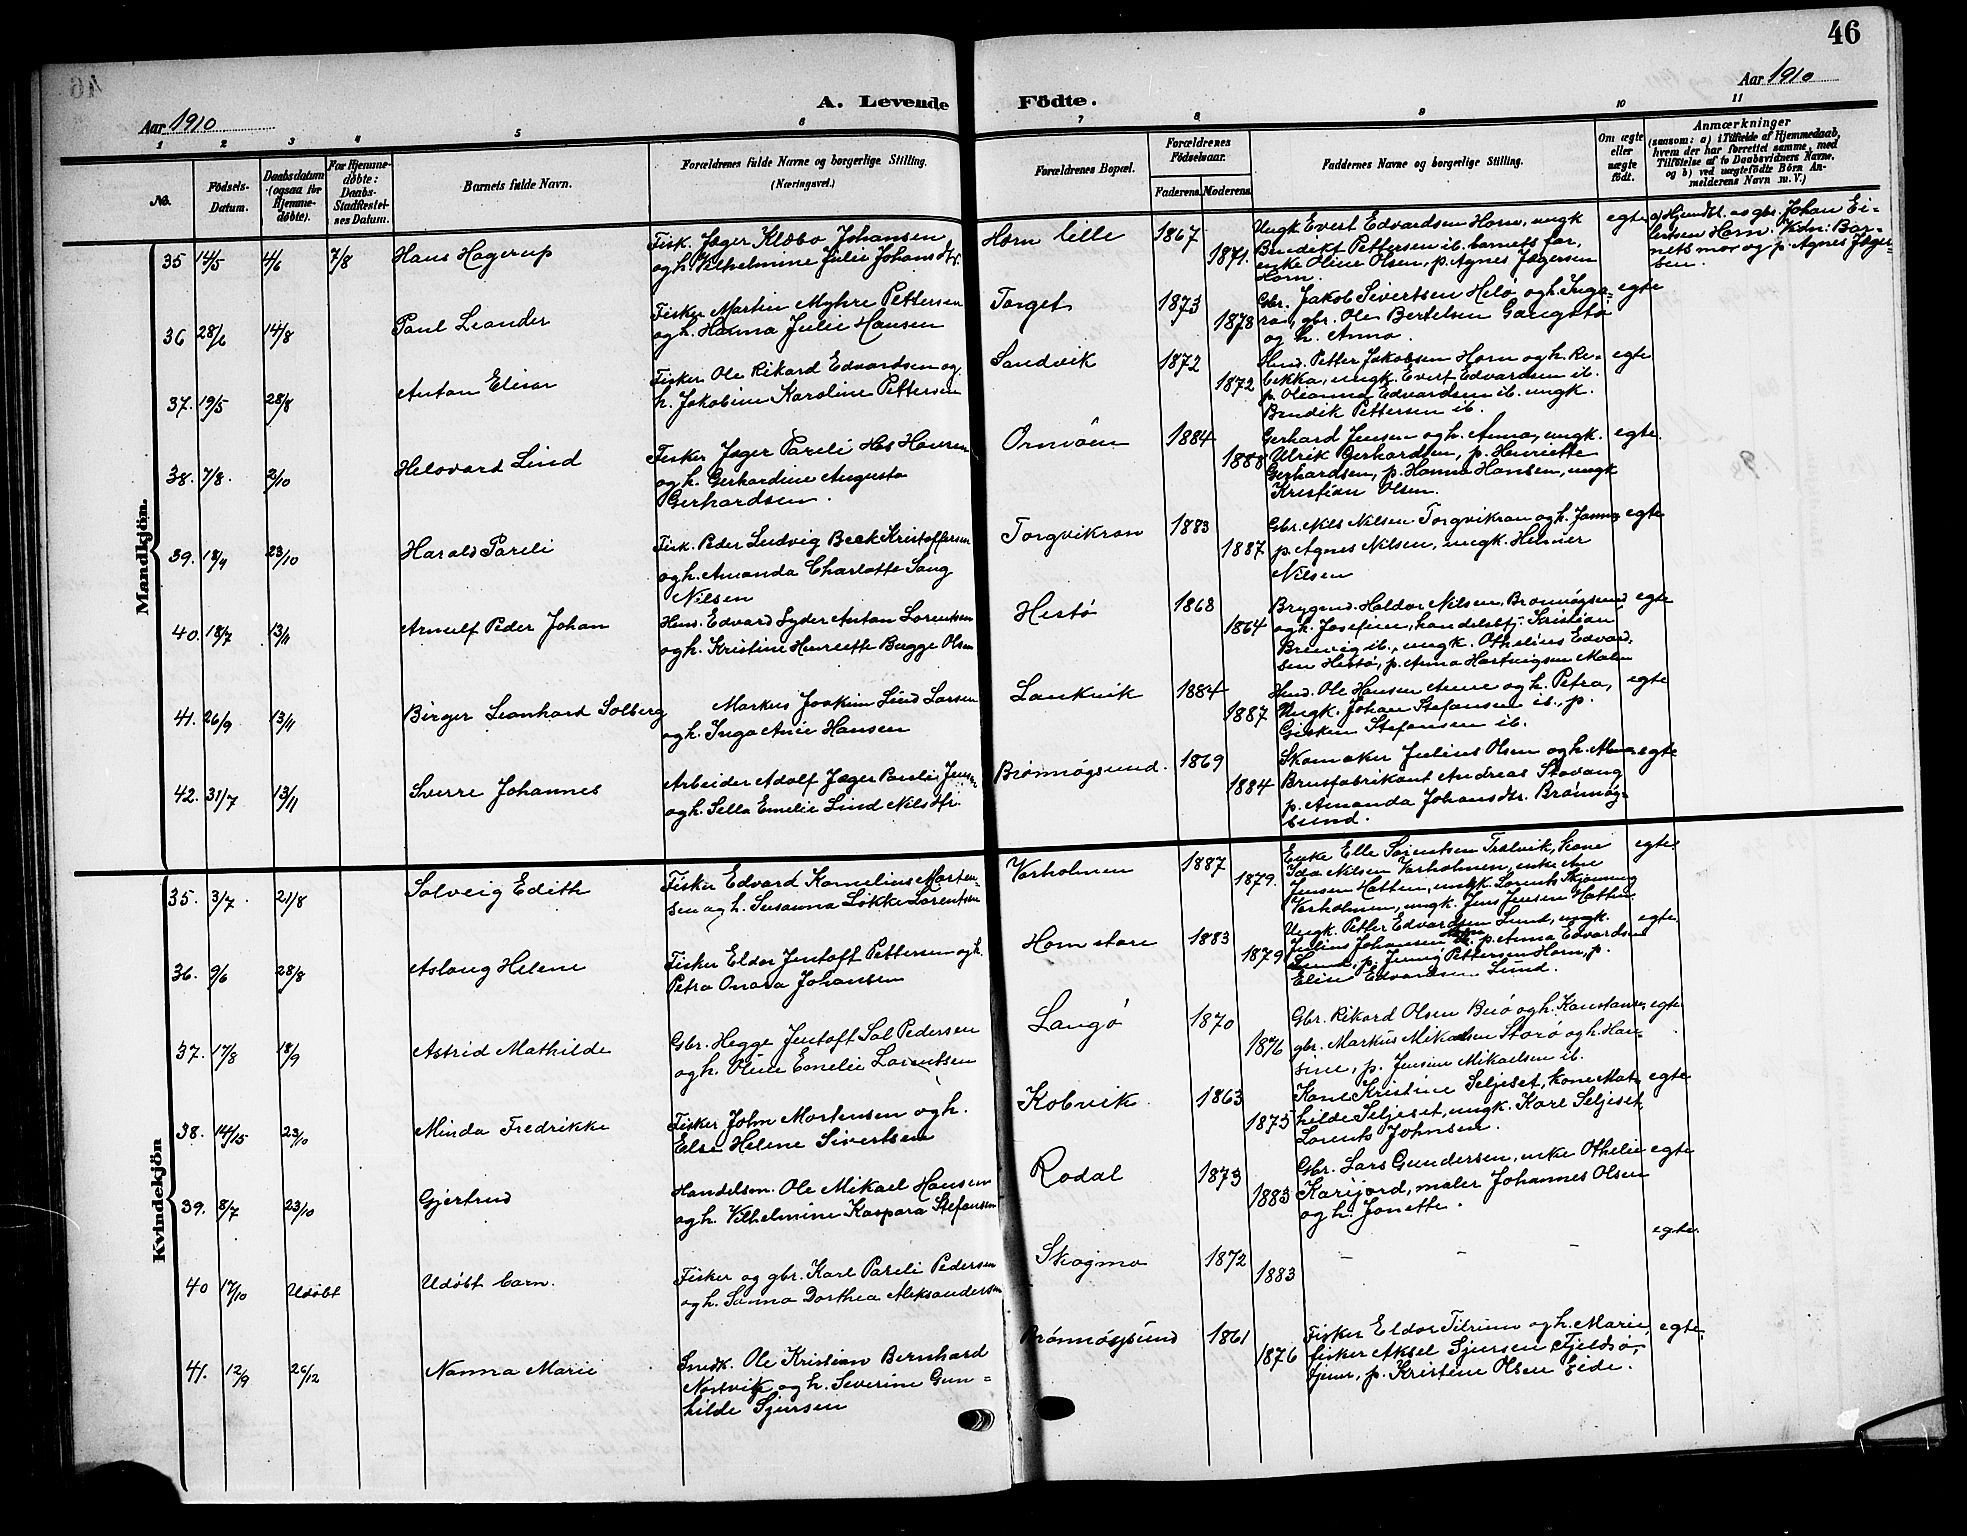 46
Aar 1910
Aar 1910
A. Levende Födte.
1 2 3 4 5 6 7 8 9 10 11
No.
Födsels-Datum.
Daabsdatum (ogsaa for Hjemme-døbte).
For Hjemme-døbte: Daabs-Stadfæstel-ses Datum.
Barnets fulde Navn.
Forældrenes fulde Navne og borgerlige Stilling.
(Næringsvei.)
Forældrenes Bopæl.
Forældrenes Födselsaar.
Faderens. Moderens.
Faddernes Navne og borgerlige Stilling.
Om ægte eller uægte födt.
Anmærkninger
(saasom: a) i Tilfælde af Hjemmedaab,
hvem der har forrettet samme, med
Tilföielse af to Daabsvidners Navne,
og b) ved uægtefödte Börn An-
melderens Navn m. V.)
Mandkjön.
35 14/5 4/6 7/8 Hans Hagerup
Fisk. Jæger Klæbo Johansen
og h. Vilhelmine Julie Johansdtr.
Horn lille 1867 1871.
Ungk Evert Edvardsen Horn, ungk
Bendikt Pettersen ib. barnets far,
enke Oline Olsen, p. Agnes Jægersen
Horn.
egte
a) Hjemdbt. as gbr. Johan Ei-
lertsen Horn. Vidn: Bar-
nets mor og p. Agnes Jæger-
sen.
36 28/6 14/8 Paul Leander
Fisker Martin Myhre Pettersen
og h. Hanna Julie Hansen
Torget 1873 1878
Gbr. Jakob Sivertsen Helø og h. Inga-
, gbr. Ole Bertelsen Gangstø
og h. Anna.
egte
37. 19/5 28/8 Anton Elisar
Fisker Ole Rikard Edvardsen og
h. Jakobine Karoline Pettersen
Sandvik 1872 1872
Petter Jakobsen Horn og h. Re-
bekka, ungk. Evert Edvardsen ib.
p. Oleanna Edvardsen ib. ungk.
Bendik Pettersen ib.
egte
38. 7/8. 2/10 Helovard Lind
Fisker Jæger Pareli Hansen
og h. Gerhardine Augusta
Gerhardsen.
Ornvöen 1884 1888
Gerhard Jensen og h. Anna, ungk.
Ulrik Gerhardsen, p. Henriette
Gerhardsen, p. Hanna Hansen, ungk
Kristian Olsen.
egte.
39. 18/9 23/10 Harald Pareli
Fisk. Peder Ludvig Beck Kristoffersen
og h. Amanda Charlotte Sang
Nilsen
Torgvikran 1883 1887
Gbr. Nils Nilsen Torgvikran og h. Janna,
p. Agnes Nilsen, ungk. Helmer
Nilsen
egte
40. 18/7 13/11 Arnulf Peder Johan
Edvard Lyder Anton Lorentsen
og h. Kristine Henriette Bugge Olsen
Hestö 1868 1864
Haldor Nilsen, Brønnøgsund
og h. Josefine, handelsbtj. Kristian
Breivig ib., ungk. Othelius Edvard-
sen Hestø, p. Anna Hartvigsen
egte
41. 26/9 13/11 Birger Leonhard Solberg
Markus Joakim Lind Larsen
og h. Inga Anie Hansen
Lankvik 1884 1887
Ole Hansen og h. Petra,
Ungk. Johan Stefansen ib., p.
Stefansen ib.
egte
42. 31/7 13/11 Sverre Johannes
Arbeider Adolf Jæger Pareli Jensen
og h. Sella Emelie Lind Nilsdtr.
Brønnøgsund. 1869 1884
Skomaker Julius Olsen og h.
Brusfabrikant Andreas Stavang
p. Amanda Johansdtr. Brønnøg-
sund.
egte
Kvindekjön
35. 3/7 21/8 Solveig Edith
Fisker Edvard Kornelius Morten-
sen og h. Susanna Løkke Lorentsen
Varholmen 1887 1879.
Enke Elle Sørentsen, Kone
Ida Nilsen Varholmen, enke Ane
Jensen Hatten, ungk. Lorents Skjönning
Varholmen, ungk. Jens Jensen Hatten
egte
36. 9/6 28/8 Aslaug Helene
Fisker Eldor Jentoft Pettersen og h.
Petra Onara Johansen
Horn store 1883 1879
Ungk. Petter Edvardsen Lund, ungk.
Julius Johansen, p. Anna Edvardsen
Lund, p. Jennig Pettersen Horn, p.
Eline Edvardsen Lund.
egte
37. 17/8 18/9 Astrid Mathilde
Gbr. Hegge Jentoft Sal Pedersen
og h. Oline Emelie Lorentsen
Langö 1870 1876
Gbr. Rikard Olsen og h. Konstanse,
gbr. Markus Mikalsen Storø og h. Han-
sine, p. Jensine Mikaelsen ib.
egte
38. 14/15 23/10 Minda Fredrikke
Fisker John Mortensen og h.
Else Helene Sivertsen
Kobvik 1863 1875
Kone Kristine Seljeset, kone Mat-
hilde Seljeset, ungk. Karl Seljeset,
Lorents Johnsen.
egte
39. 8/7 23/10 Gjertrud
Handelsm. Ole Mikael Hansen
og h. Vilhelmine Kaspara Stefansen
Rodal 1873 1883
Gbr. Lars Gundersen, enke Othelie
Karijord, maler Johannes Olsen
og h. Jonette.
egte
40 17/10 Udöbt Udöbt barn.
Fisker og gbr. Karl Pareli Pedersen
og h. Sanna Dorthea Aleksandersen
Skogmo 1872 1883
– – –
egte
41. 12/9 26/12 Nanna Marie
Snedk. Ole Kristian Bernhard
Nordvik og h. Severine Gun-
hilde Sjursen
Brønnøysund 1861 1876
Fisker Eldor Tilrum og h. Marie
fisker Aksel Sjursen
p. Kristine Olsen Eide.
egte.